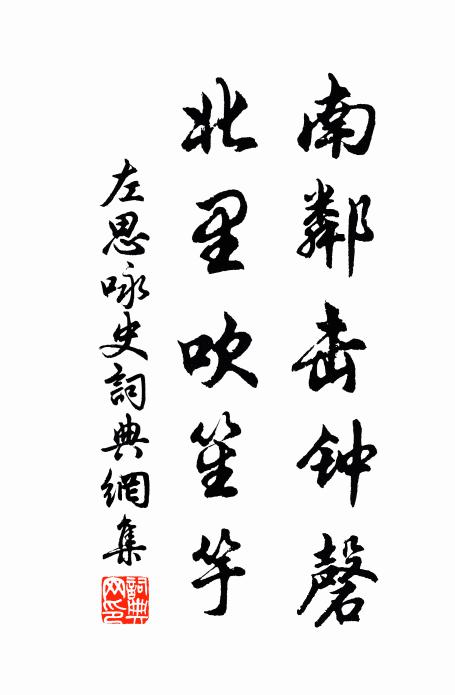 南鄰击钟磬
北里吹笙竽
左思咏史詞典網集
詞典網印